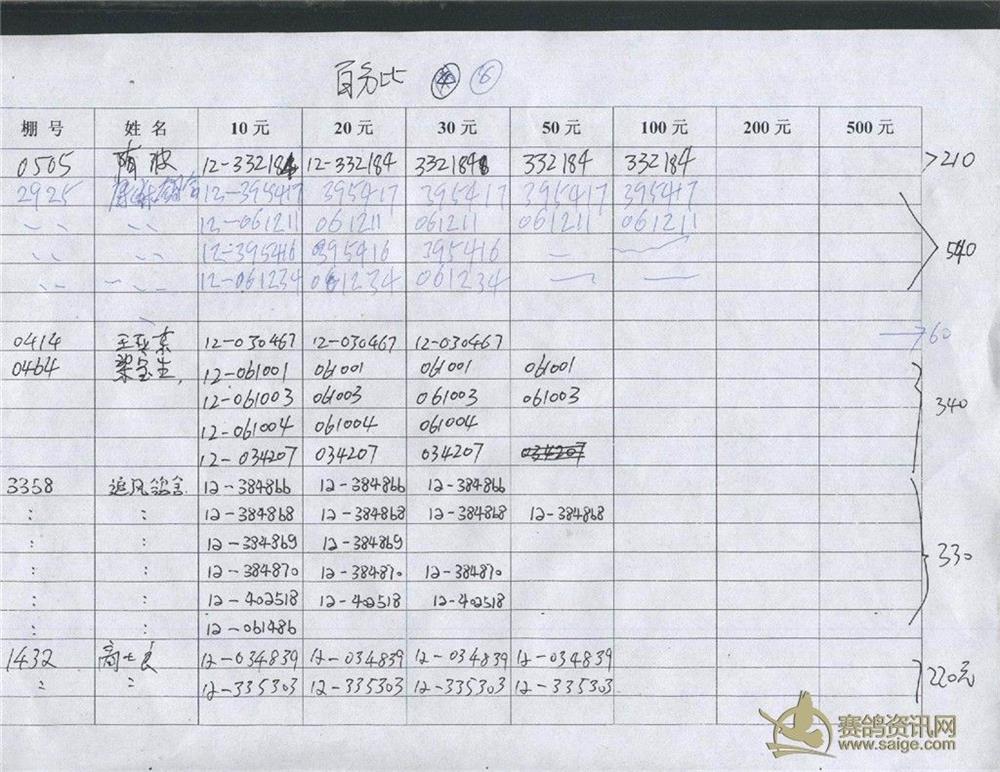 百分比 ⑥
棚号 姓名 10元 20元 30元 50元 100元 200元 500元
0505 隋波 12-332184 12-332184 332184 332184 332184 >210
2925 12-395417 395417 395417 395417 395417
〃 〃 12-061211 061211 061211 061211 061211 540
〃 〃 12-395416 395416 395416 — —
〃 〃 12-061234 061234 061234 — —
→60
0414 12-030467 12-030467 12-030467
0464 梁宝生 12-061001 061001 061001 061001
12-061003 061003 061003 061003 340
12-061004 061004 061004
12-034207 034207 034207 034207
3358 追风鸽舍 12-384866 12-384866 12-384866
: : 12-384868 12-384868 12-384868 12-384868
: : 12-384869 12-384869 330
: : 12-384870 12-384870 12-384870
: : 12-402518 12-402518 12-402518
: : 12-061486
1432 高士良 12-034839 12-034839 12-034839 12-034839 220元
〃 : 12-335303 12-335303 12-335303 12-335303
赛鸽资讯网
www.saige.com